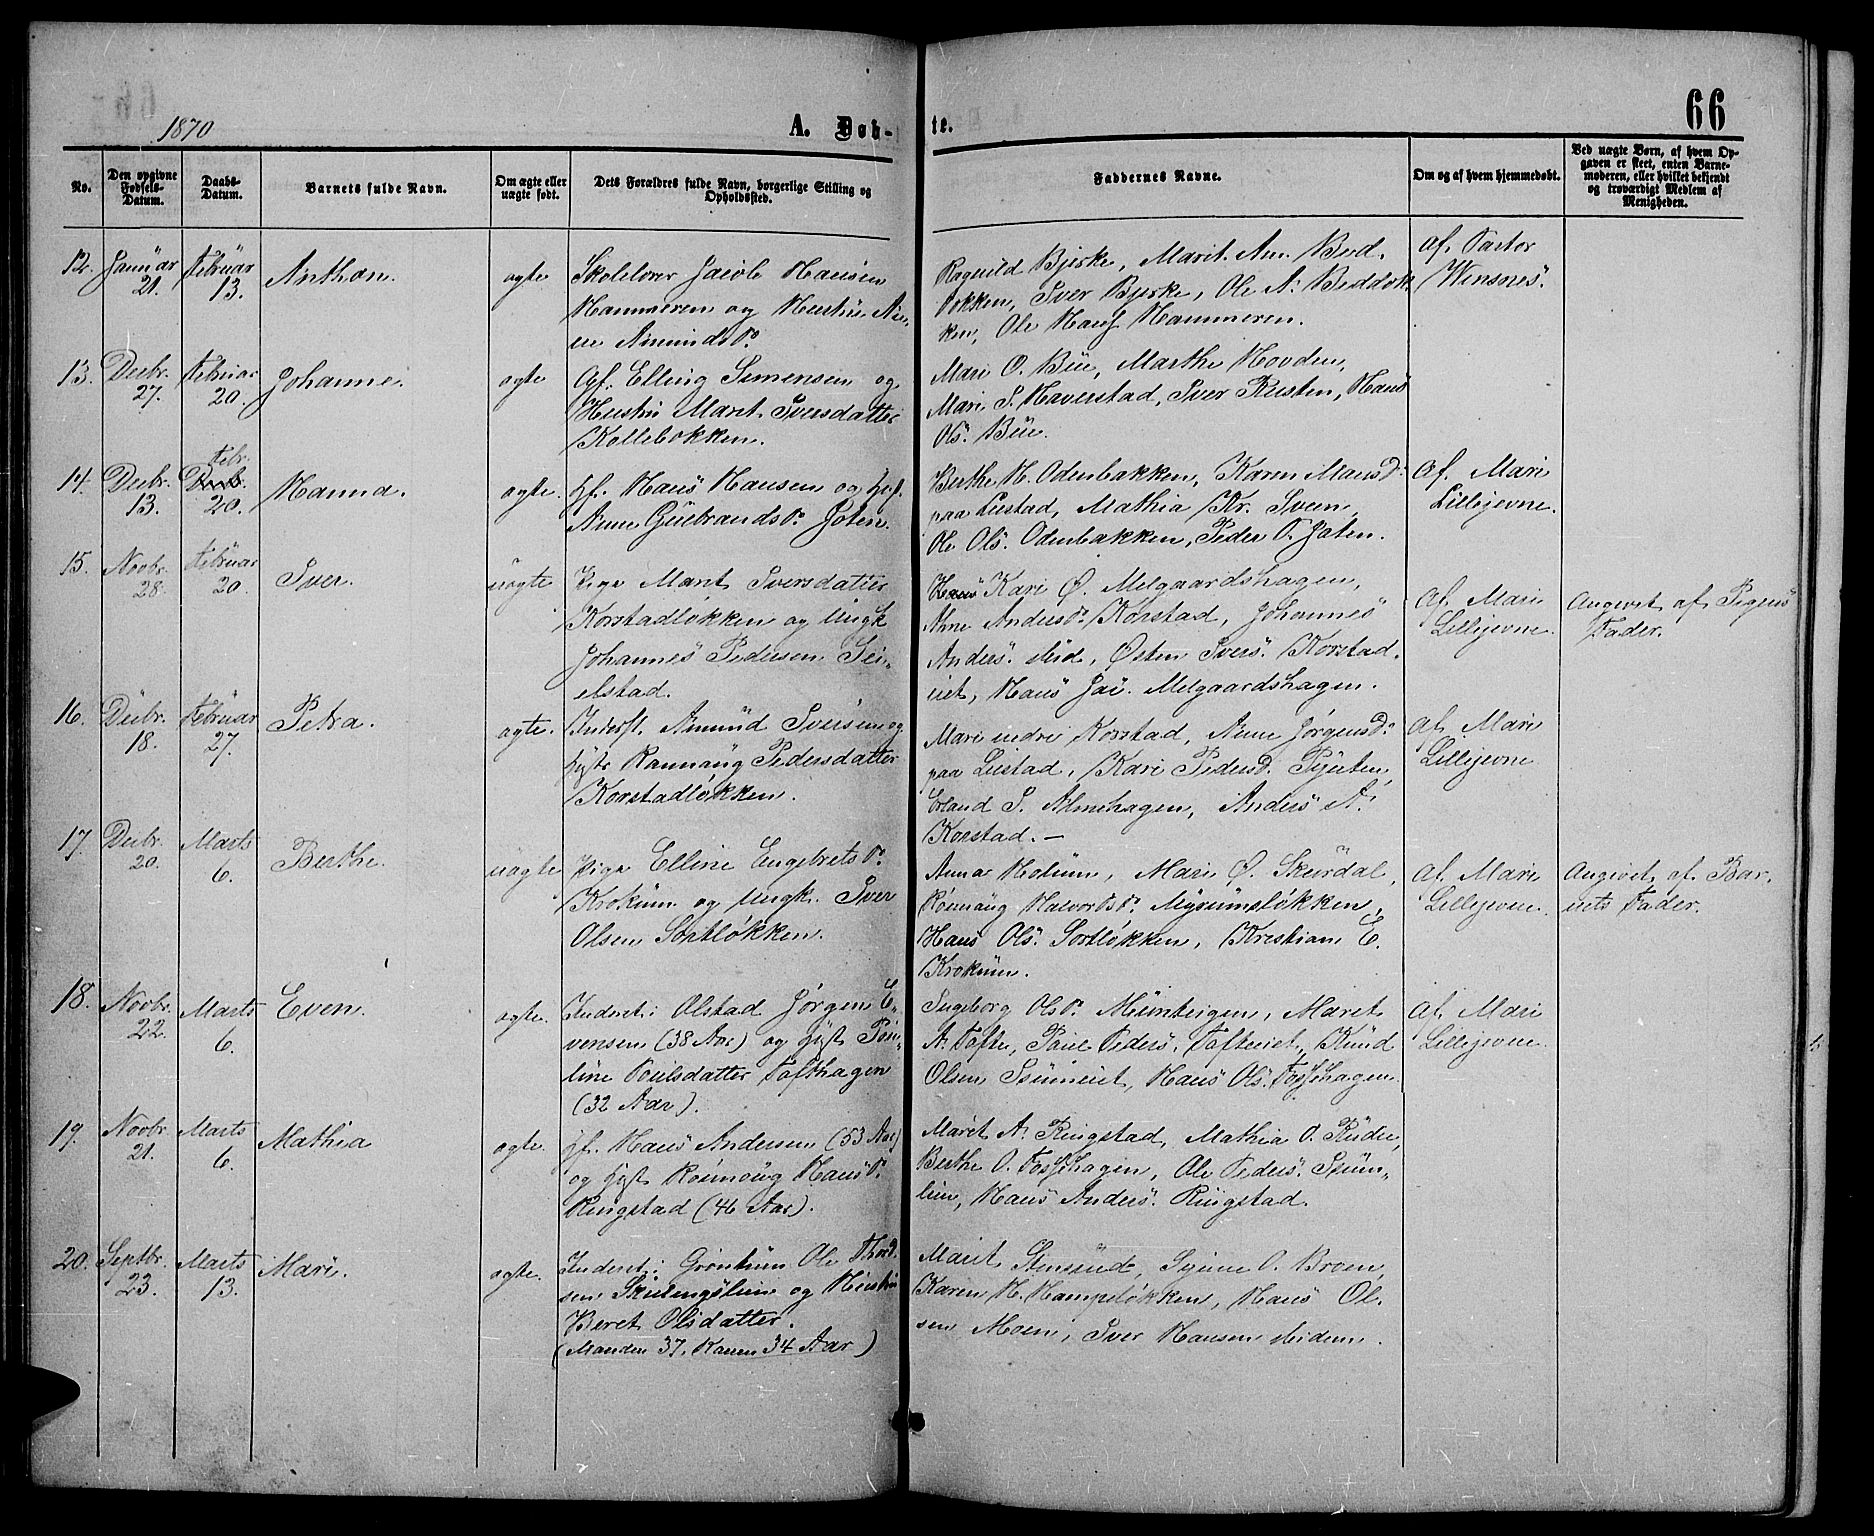 1870
A. Døb-
te.
66
No.
Den opgivne Fødsels-Datum.
Daabs-Datum.
Barnets fulde Navn.
Om ægte eller uægte født.
Dets Forældres fulde Navn, borgerlige Stilling og Opholdssted.
Faddernes Navne.
Om og af hvem hjemmedøbt.
Ved uægte Børn, af hvem Opgaven er skeet, enten Barnemoderen, eller hvilket bekjendt og troværdigt Medlem af Menigheden.
12. Januar 21. Februar 13. Anthon. ægte
Skolelærer Jacob Hansen
Hammeren og Hustru
Amunds D.
Ragnild Bjerke, Marit An. Bred-
løkken, Iver Bjerke, Ole A.
ken, Ole Hans. Hammeren.
af Pastor
Winsnes.
13. Decbr. 27. Februar 20. Johanne. ægte
Elling Simensen og
Hustru Marit Iversdatter
Kollebækken.
Mari O. Bue, Marthe Hovden,
Mari S. Haverstad, Iver Kusten, Hans
Ols. Bue.
14. Decbr. 13. Febr. 20. Hanna. ægte.
Hans Hansen og
Anne Gulbrands D. Joten.
Berthe H. Odenbakken, Karen Hans D.
paa Listad, Mathia Kr. Sveen,
Ole Ols. Odenbakken, Peder O. Joten.
af Mari
Lillejevne.
15. Novbr. 28. Februar 20. Iver. uægte
Pige Marit Iversdatter
Korstadløkken og Ungk.
Johannes Pedersen
elstad.
Kari Ø. Melgaardshagen,
Anne Anders D. Korstad, Johannes
Anders. ibid, Østen Ivers. Korstad-
eiet, Hans Jac. Melgaardshagen.
af Mari
Lillejevne.
Angivet af Pigens
Fader.
16. Decbr. 18. Februar 27. Petra. ægte.
Inderst. Amund Iversen og
Rannaug Pedersdatter
Korstadløkken.
Mari nedre Korstad, Anne Jørgens D.
paa Listad, Kari Peders D.
Erland S. Almehagen, Anders A.
Korstad. —
af Mari
Lillejevne
17. Decbr. 20. Marts 6. Berthe. uægte
Pige Elline Engebrets D.
Krokum og Ungk. Iver
Olsen Sortløkken.
Anna Holum, Mari Ø. Skurdal,
Rønnaug Halvords D. Myrumsløkken,
Hans Ols. Sortløkken, Kristian E.
Krokum.
af Mari
Lillejevne.
Angivet af Bar-
nets Fader.
18. Novbr. 22. Marts 6. Even. ægte.
Inderst: Olstad Jørgen E-
vensen (38 Aar) og Pou-
line Poulsdatter Tofthagen
(32 Aar).
Ingeborg Ols D. Marit
A. Tofte, Paul Peders. Tofteeiet, Knud
Olsen Hans Ols. Fosshagen.
af Mari
Lillejevne.
19. Novbr. 21. Marts 6. Mathia ægte.
Hans Andersen (53 Aar)
og Rønnoug Hans D.
Ringstad (46 Aar).
Marit A. Ringstad, Mathia O. Ruden,
Berthe O. Fosshagen, Ole Peders.
lien, Hans Anders. Ringstad.
20. Septbr. 23. Marts 13. Mari. ægte.
Inderst: Ole Thord-
sen og Hustru
Beret Olsdatter.
(Manden 37, Konen 34 Aar)
Marit Stensrud, Synne O. Broen,
Karen H. Hampeløkken, Hans Ol-
sen Moen, Iver Hansen ibidem.